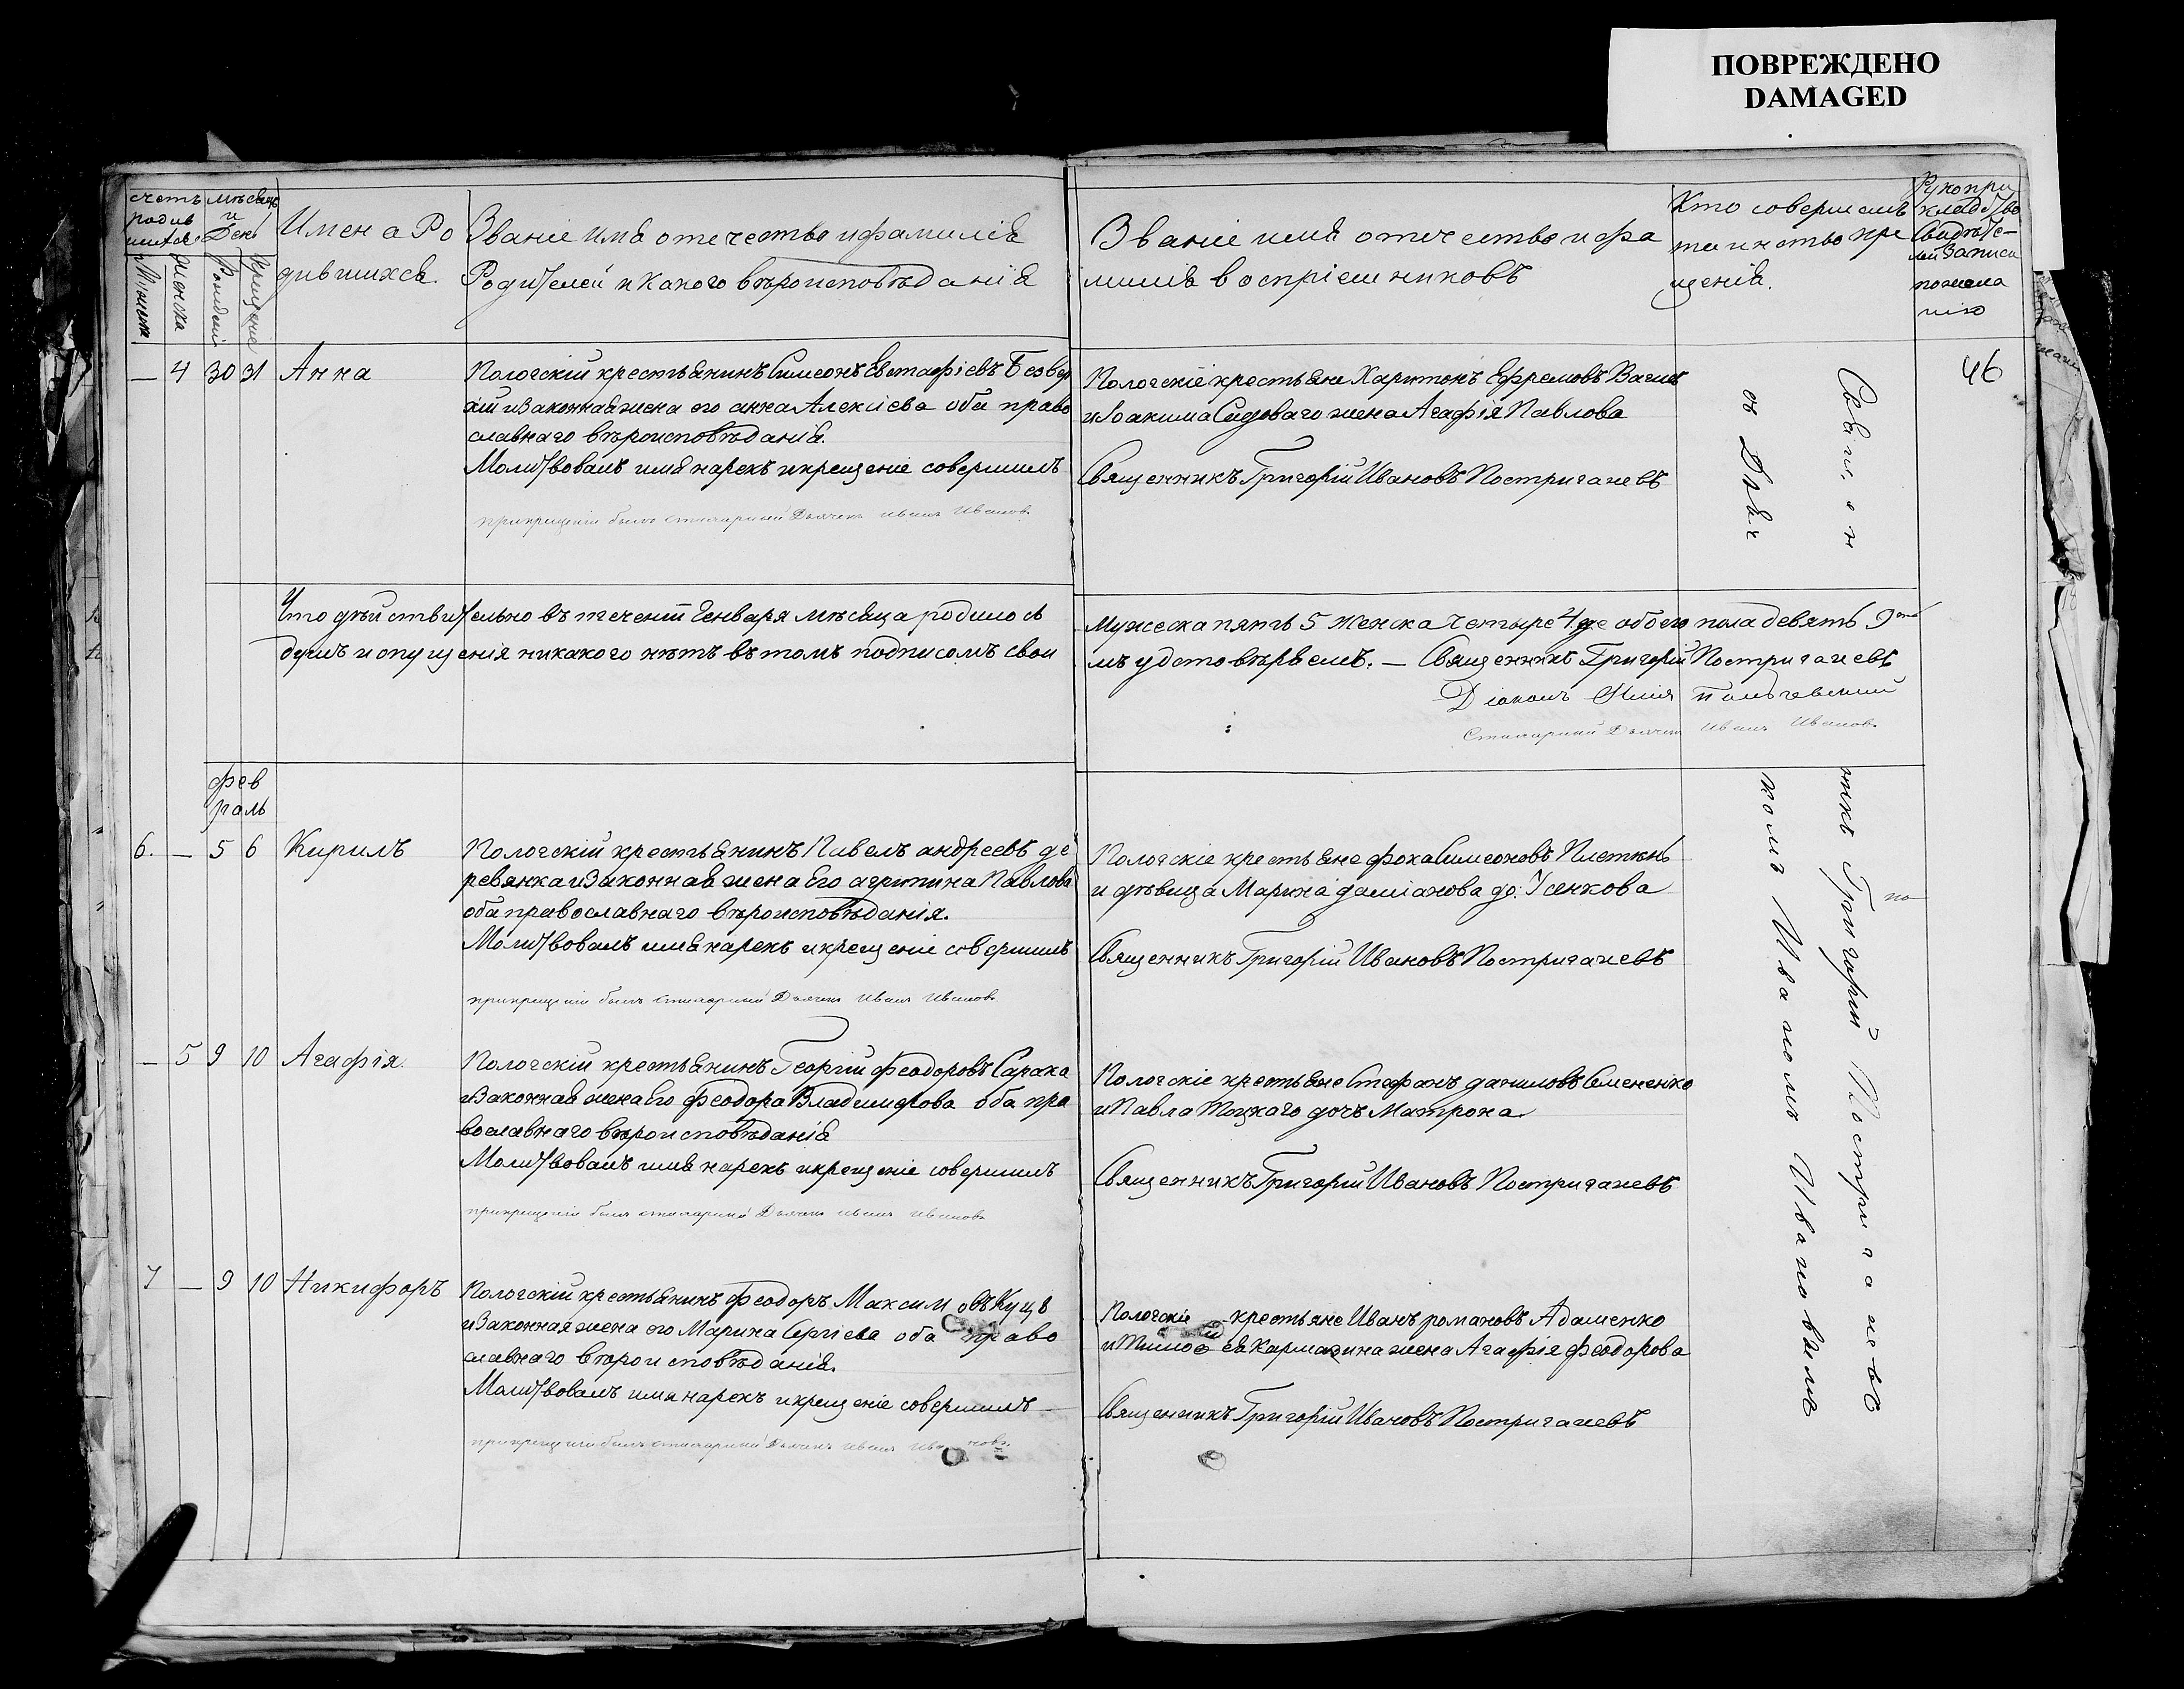 ПОВРЕЖДЕНО
DAMAGED
счетъ родившихся
Мужеска
Женска
мѣсяцъ и День
Рожденія
Крещенія
Имена Родившихся.
Званіе имя отечество и фамилія
Родителей и какого вѣроисповѣданія
Званіе имя отечество и фа
милія воспріемниковъ
Кто совершалъ
таинство кре
щенія.
Рукопри
кладство
Свидѣте-
лей записи
по жела
нію
46
— 4 30 31 Анна
Пологскій крестьянинъ Симеонъ Евстафіевъ
и законная жена его анна Алексіева оба право
славнаго вѣроисповѣданія.
Молитвовалъ имя нарекъ и крещеніе совершилъ
при крещеніи былъ стихарный Дьячекъ Иванъ Ивановъ
Пологскіе крестьяне Харитонъ Ефремовъ
и Іоакима Садоваго жена Агафія Павлова
Священникъ Григорій Ивановъ Постригачевъ
Что дѣйствительно въ теченіи Генваря мѣсяца родилось
душъ и опущенія никакого нѣтъ въ томъ подписомъ свои
Мужеска пять 5 женска четыре 4 обоего пола девять 9
мъ удостовѣряемъ. — Священникъ Григорій Постригачевъ
Діаконъ
Стихарный Дьячекъ Иванъ Ивановъ
фев
раль
6. — 5 6 Кирилъ
Пологскій крестьянинъ Павелъ андреевъ де
ревянка и законная жена Его агрипина Павлова
оба православнаго вѣроисповѣданія.
Молитвовалъ имя нарекъ и крещеніе совершилъ
при крещеніи былъ стихарный Дьячекъ Иванъ Ивановъ
Пологскіе крестьяне фока Симеоновъ Плетень
и дѣвица Марина даміанова до: Усенкова
Священникъ Григорій Ивановъ Постригачевъ
— 5 9 10 Агафія.
Пологскій крестьянинъ Георгій Феодоровъ Сарака
и законная жена Его Феодора Владимирова оба пра
вославнаго вѣроисповѣданія
Молитвовалъ имя нарекъ и крещеніе совершилъ
при крещеніи былъ стихарный Дьячекъ Иванъ Ивановъ
Пологскіе крестьяне Стефанъ даниловъ Семененко
и Павла дочь Матрона
Священникъ Григорій Ивановъ Постригачевъ
7 — 9 10 Никифоръ
Пологскій крестьянинъ Феодоръ Максимовъ
и законная жена его Марина Сергіева оба право
славнаго вѣроисповѣданія.
Молитвовалъ имя нарекъ и крещеніе совершилъ
при крещеніи былъ стихарный Дьячекъ Иванъ Ивановъ
Пологскіе крестьяне Иванъ романовъ Адаменко
и Тимофея Кармазина жена Агафія Феодорова
Священникъ Григорій Ивановъ Постригачевъ
Священникъ Григорій Постригачевъ
съ Дьячкомъ Иваномъ Ивановымъ